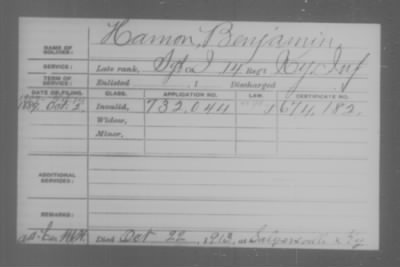 NAME OF SOLDIER: Hamon, Benjamin
SERVICE: Late rank, Sgt Co. I, 14 Reg't Ky. Inf
TERM OF SERVICE: Enlisted , 1 Discharged
DATE OF FILING. CLASS. APPLICATION NO. LAW. CERTIFICATE NO.
1889, Oct. 3, Invalid, 732,044 674,182.
Widow,
Minor,
ADDITIONAL SERVICES:
REMARKS:
Died Oct 22, 1913, at Salyersville Ky